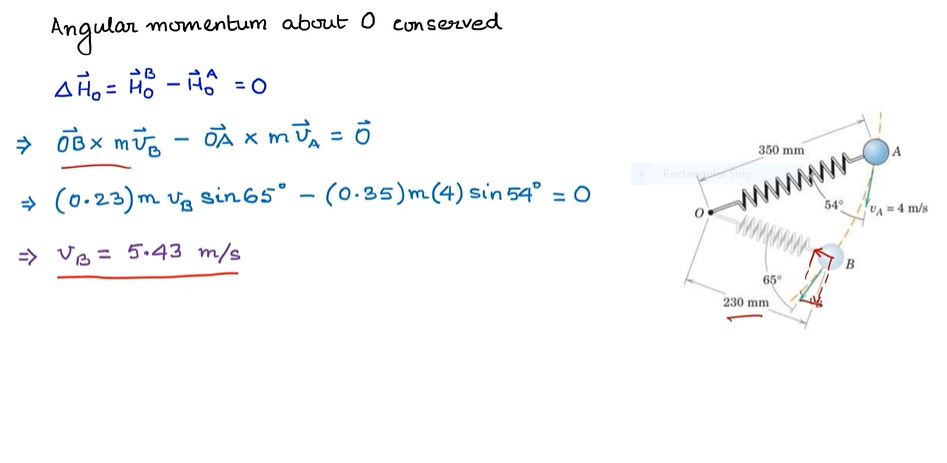 Angular momentum about O conserved
ΔH⃗₀ = H⃗₀ᴮ − H⃗₀ᴬ = 0
⇒ OB⃗ × m v⃗_B − OA⃗ × m v⃗_A = 0⃗
⇒ (0.23) m v_B sin 65° − (0.35) m (4) sin 54° = 0
⇒ v_B = 5.43 m/s
350 mm
A
Rectangular Snip
54°
v_A = 4 m/s
O
B
65°
230 mm